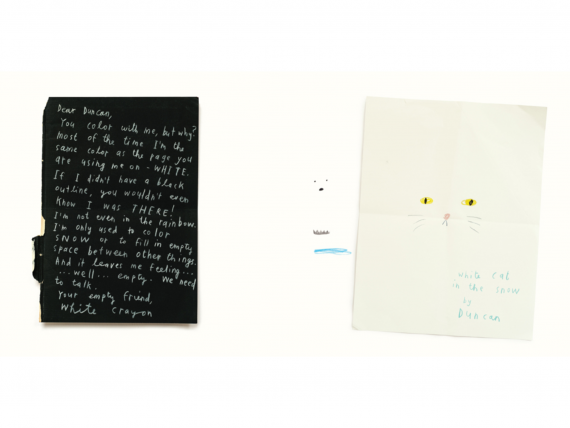 Dear Duncan,
You color with me, but why?
Most of the time I'm the
same color as the page you
are using me on - WHITE.
If I didn't have a black
outline, you wouldn't even
know I was THERE!
I'm not even in the rainbow.
I'm only used to color
SNOW or to fill in empty
space between other things.
And it leaves me feeling...
...well... empty. We need
to talk.
Your empty friend,
White Crayon
white cat
in the snow
by
Duncan